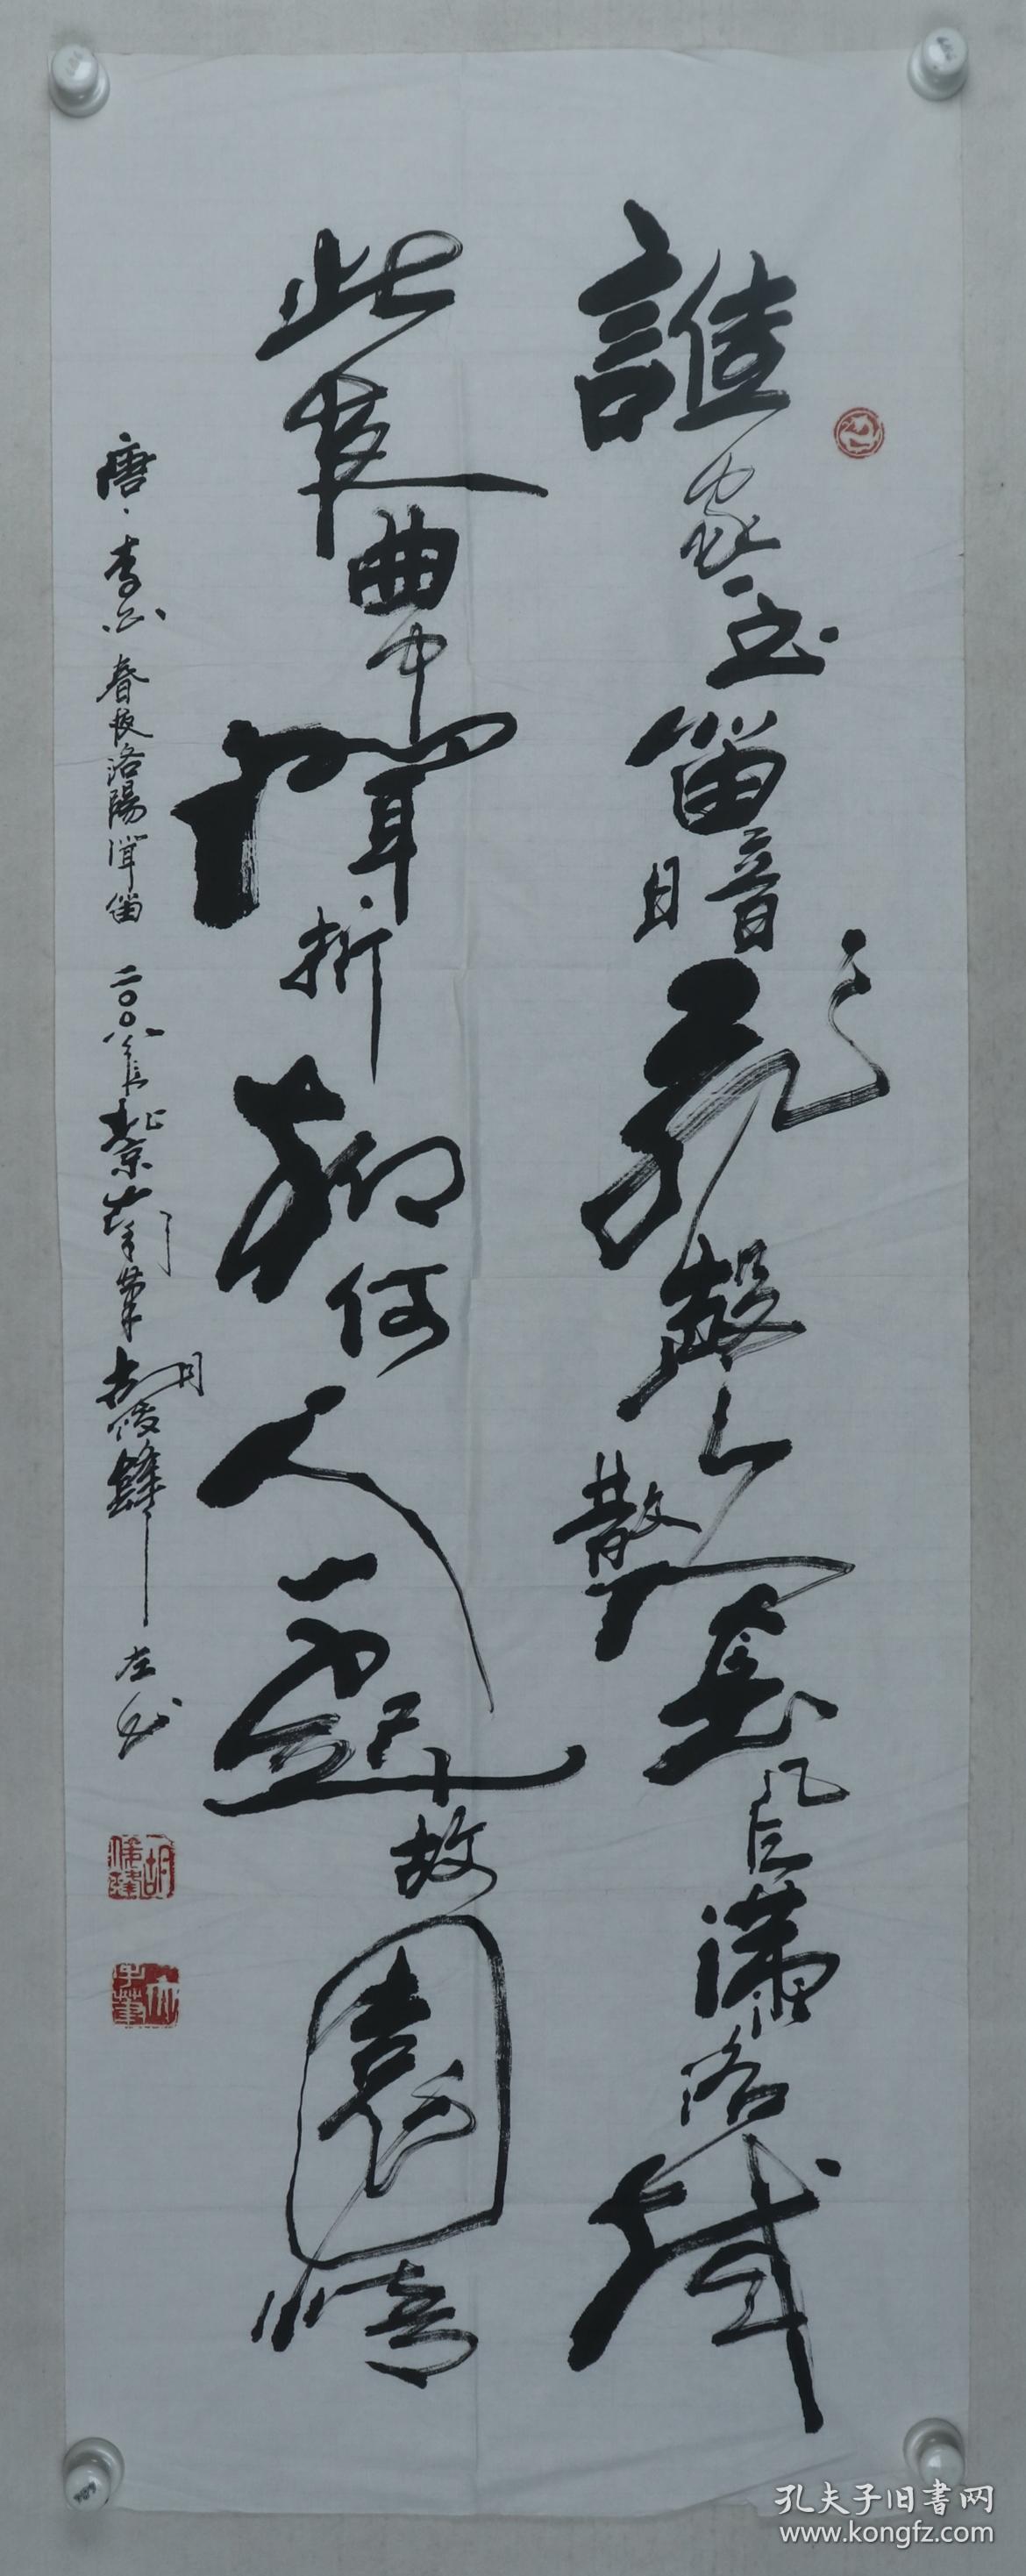 誰家玉笛暗飛聲散入春風滿洛城
此夜曲中聞折柳何人不起故園情
唐、李白春夜洛陽聞笛 二〇〇八年 北京 胡 左书
孔夫子旧书网
www.kongfz.com